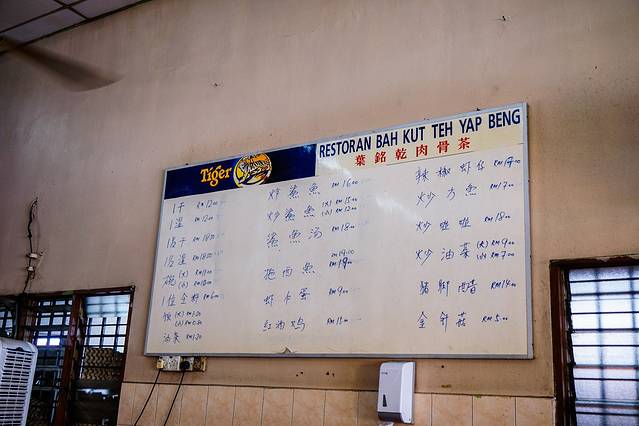 Tiger
RESTORAN BAH KUT TEH YAP BENG
葉銘乾肉骨茶
1干 RM 12.00
1溫 RM 12.00
RM 18.00
RM 18.00
(大) RM 11.00
(小) RM 10.00
RM 6.00
飯 (大) RM 1.20
(小)
油条 RM 1.20
炸鲨魚 RM 16.00
炒鲨魚 (大) RM 15.00
(小) RM 12.00
鲨魚汤 RM 18.00
RM 19.00
西魚 RM 19.00
虾卡蛋 RM 9.00
红油鸡 RM 11.00
辣椒虾仔 RM 17.00
炒方魚 RM 17.00
炒啦啦 RM 18.00
炒油菜 (大) RM 9.00
(小) RM 7.00
豬腳醋 RM 14.00
金針菇 RM 5.00